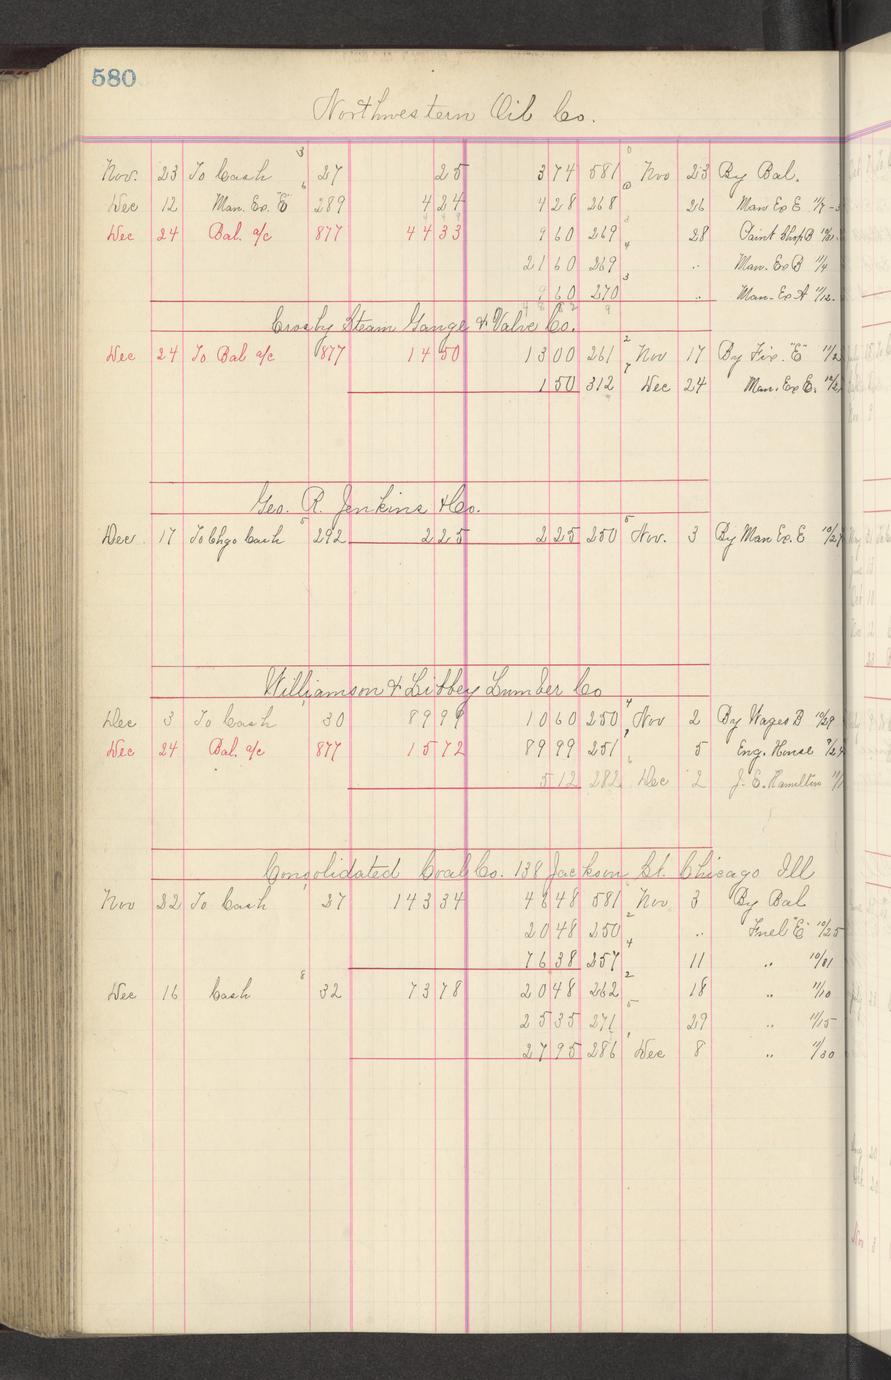 580
Northwestern Oil Co.
Nov. 23 To Cash 3 27 25 3 74 581 0 Nov 23 By Bal.
Dec 12 Man. Ex. "E" 6 289 4 24 4 28 268 26 Man Ex E 11/7
Dec 24 Bal. a/c 877 44 33 9 60 269 3 28 Paint Shop B
21 60 269 4 " Man. Ex B 11/4
9 60 270 3 " Man. Ex A 11/12
Crosby Steam Gauge & Valve Co.
Dec 24 To Bal a/c 877 14 50 13 00 261 2 Nov 17 By Fix. "E" 11/2
1 50 312 7 Dec 24 Man. Ex E.
Geo. R. Jenkins & Co.
Dec 17 To Chgo Cash 5 292 2 25 2 25 250 5 Nov. 3 By Man Ex. E 10/29
Williamson & Libbey Lumber Co
Dec 3 To Cash 1 30 89 99 10 60 250 4 Nov 2 By Wages B 10/29
Dec 24 Bal. a/c 877 15 72 89 99 251 1 5 Eng. House
5 12 282 6 Dec 2 J. E. Hamilton
Consolidated Coal Co. 138 Jackson St. Chicago Ill
Nov 22 To Cash 1 27 143 34 46 48 581 Nov 3 By Bal
20 48 250 2 " Fuel "E" 10/25
76 38 257 4 11 " 10/31
Dec 16 Cash 8 32 73 78 20 48 262 2 18 " 11/10
25 35 271 5 29 " 11/15
27 95 286 1 Dec 8 " 11/30